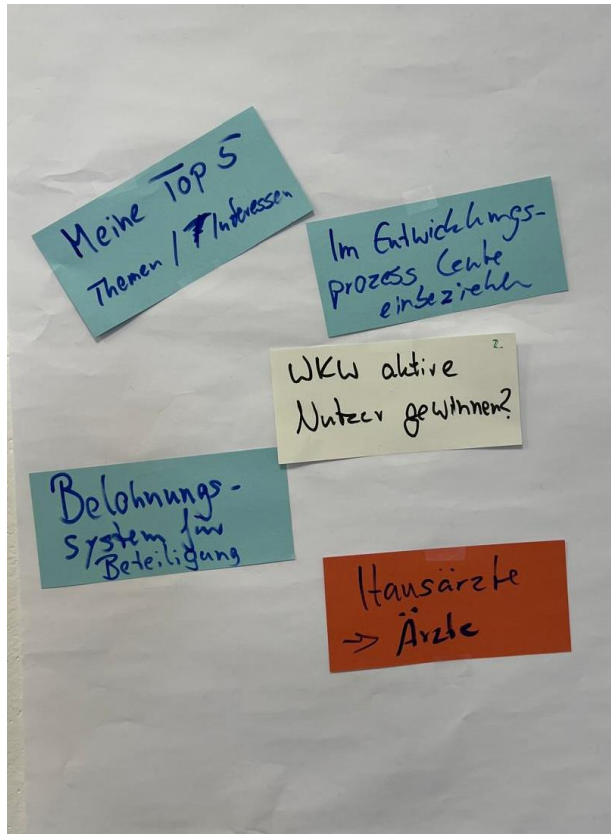 Meine Top 5
Themen / Interessen
Im Entwicklungs-
prozess Leute
einbeziehen
2.
WKW aktive
Nutzer gewinnen?
Belohnungs-
system für
Beteiligung
Hausärzte
→ Ärzte